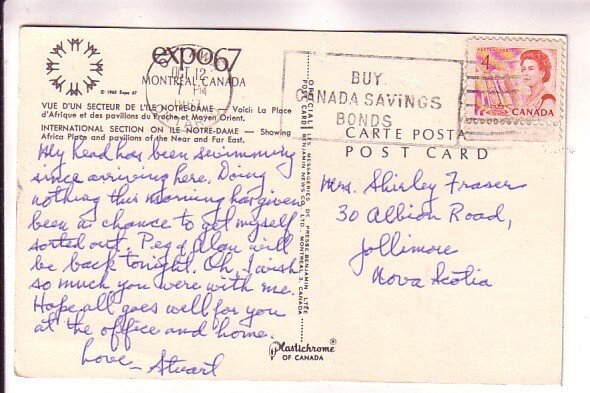 expo67
MONTRÉAL, CANADA
© 1963 Expo 67
VUE D'UN SECTEUR DE L'ÎLE NOTRE-DAME — Voici: La Place
d'Afrique et des pavillons du Proche et Moyen Orient.
INTERNATIONAL SECTION ON ILE NOTRE-DAME — Showing
Africa Place and pavilions of the Near and Far East.
My head has been swimming
since arriving here. Doing
nothing this morning has given
been a chance to get myself
sorted out. Peg & Alan will
be back tonight. Oh, I wish
so much you were with me.
Hope all goes well for you
at the office and home.
Love — Stuart
OCT 12
PM
BUY
CANADA SAVINGS
BONDS
4
CANADA
CARTE POSTALE
POST CARD
Mrs. Shirley Fraser
30 Albion Road,
Jollimore
Nova Scotia
LES MESSAGERIES DE PRESSE BENJAMIN LTÉE
BENJAMIN NEWS CO. LTD., MONTREAL 3, CANADA
OFFICIAL
POST CARD
Plastichrome
OF CANADA